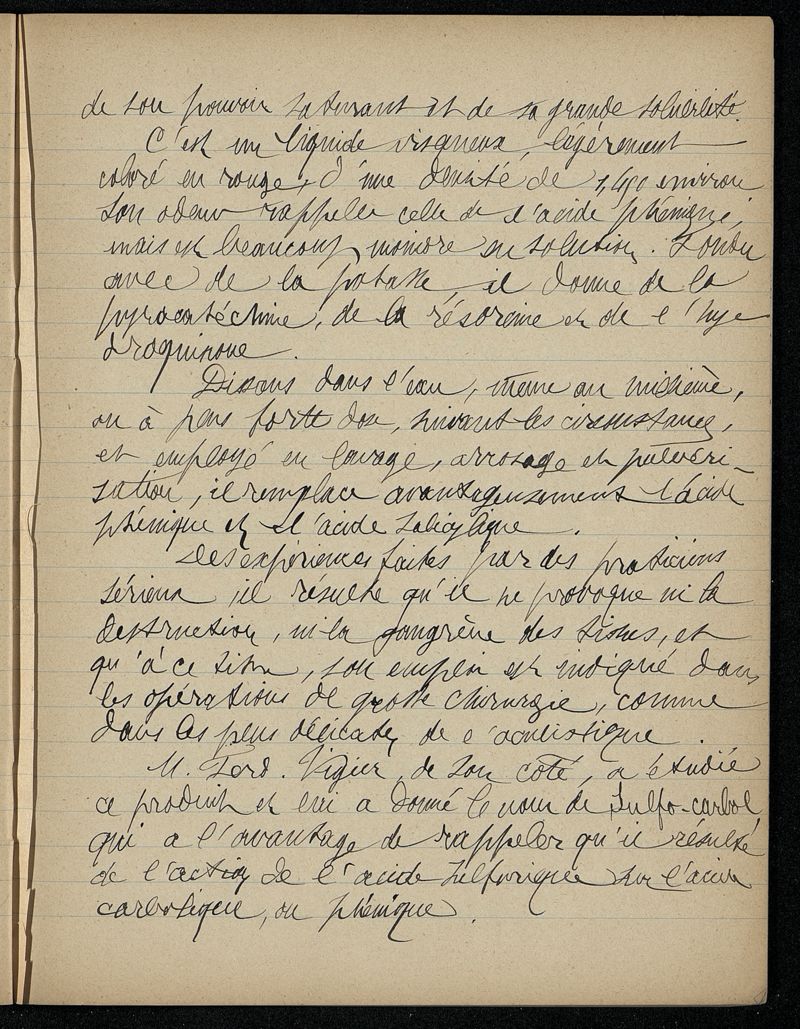 de son pouvoir saturant et de sa grande solubilité.
C'est un liquide visqueux, légèrement
coloré en rouge, d'une densité de 1,40 environ
Son odeur rappelle celle de l'acide phénique,
mais est beaucoup moindre en solution. Fondu
avec de la potasse, il donne de la
pyrocatéchine, de la résorcine et de l'hy-
droquinone.
Dissous dans l'eau, même au millième,
ou à plus forte dose, suivant les circonstances,
et employé en lavage, arrosage et pulvéri-
sation, il remplace avantageusement l'acide
phénique et l'acide salicylique.
Des expériences faites par des praticiens
sérieux il résulte qu'il ne provoque ni la
destruction, ni la gangrène des tissus, et
qu'à ce titre, son emploi est indiqué dans
les opérations de grosse chirurgie, comme
dans les plus délicates de l'oculistique.
M. Ferd. Vigier, de son côté, a étudié
ce produit et lui a donné le nom de Sulfo-carbol,
qui a l'avantage de rappeler qu'il résulte
de l'action de l'acide sulfurique sur l'acide
carbolique, ou phénique.